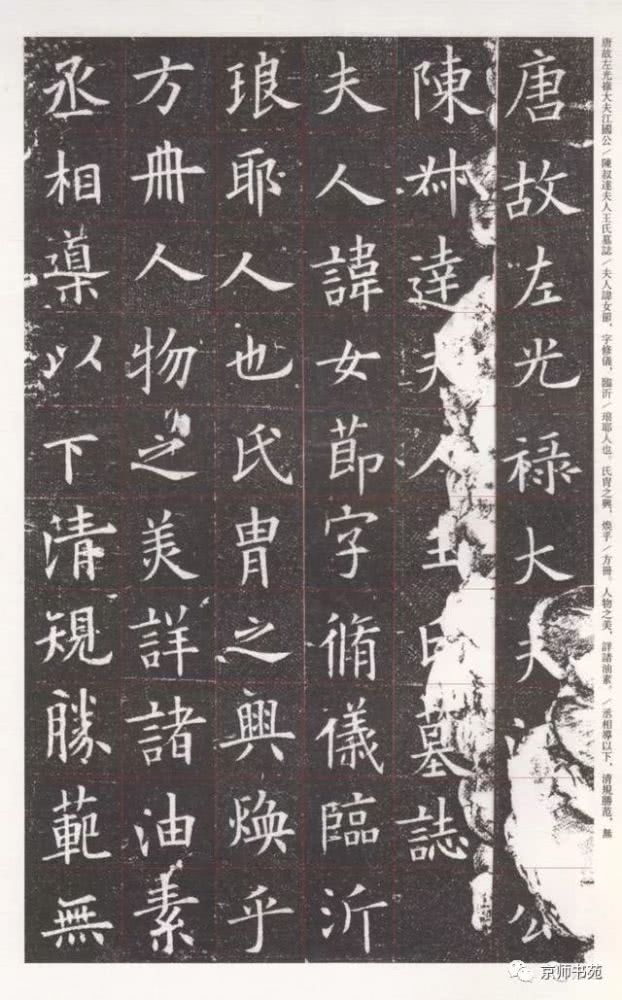 唐故左光祿大夫江國公／陳叔達夫人王氏墓誌／夫人諱女節，字修儀，臨沂／琅耶人也。氏冑之興，煥乎／方冊，人物之美，詳諸油素。／丞相導以下，清規勝范，無
唐故左光禄大夫公
陳叔達夫人王氏墓誌
夫人諱女節字脩儀臨沂
琅耶人也氏冑之興煥乎
方冊人物之美詳諸油素
丞相導以下清規勝範無
京师书苑